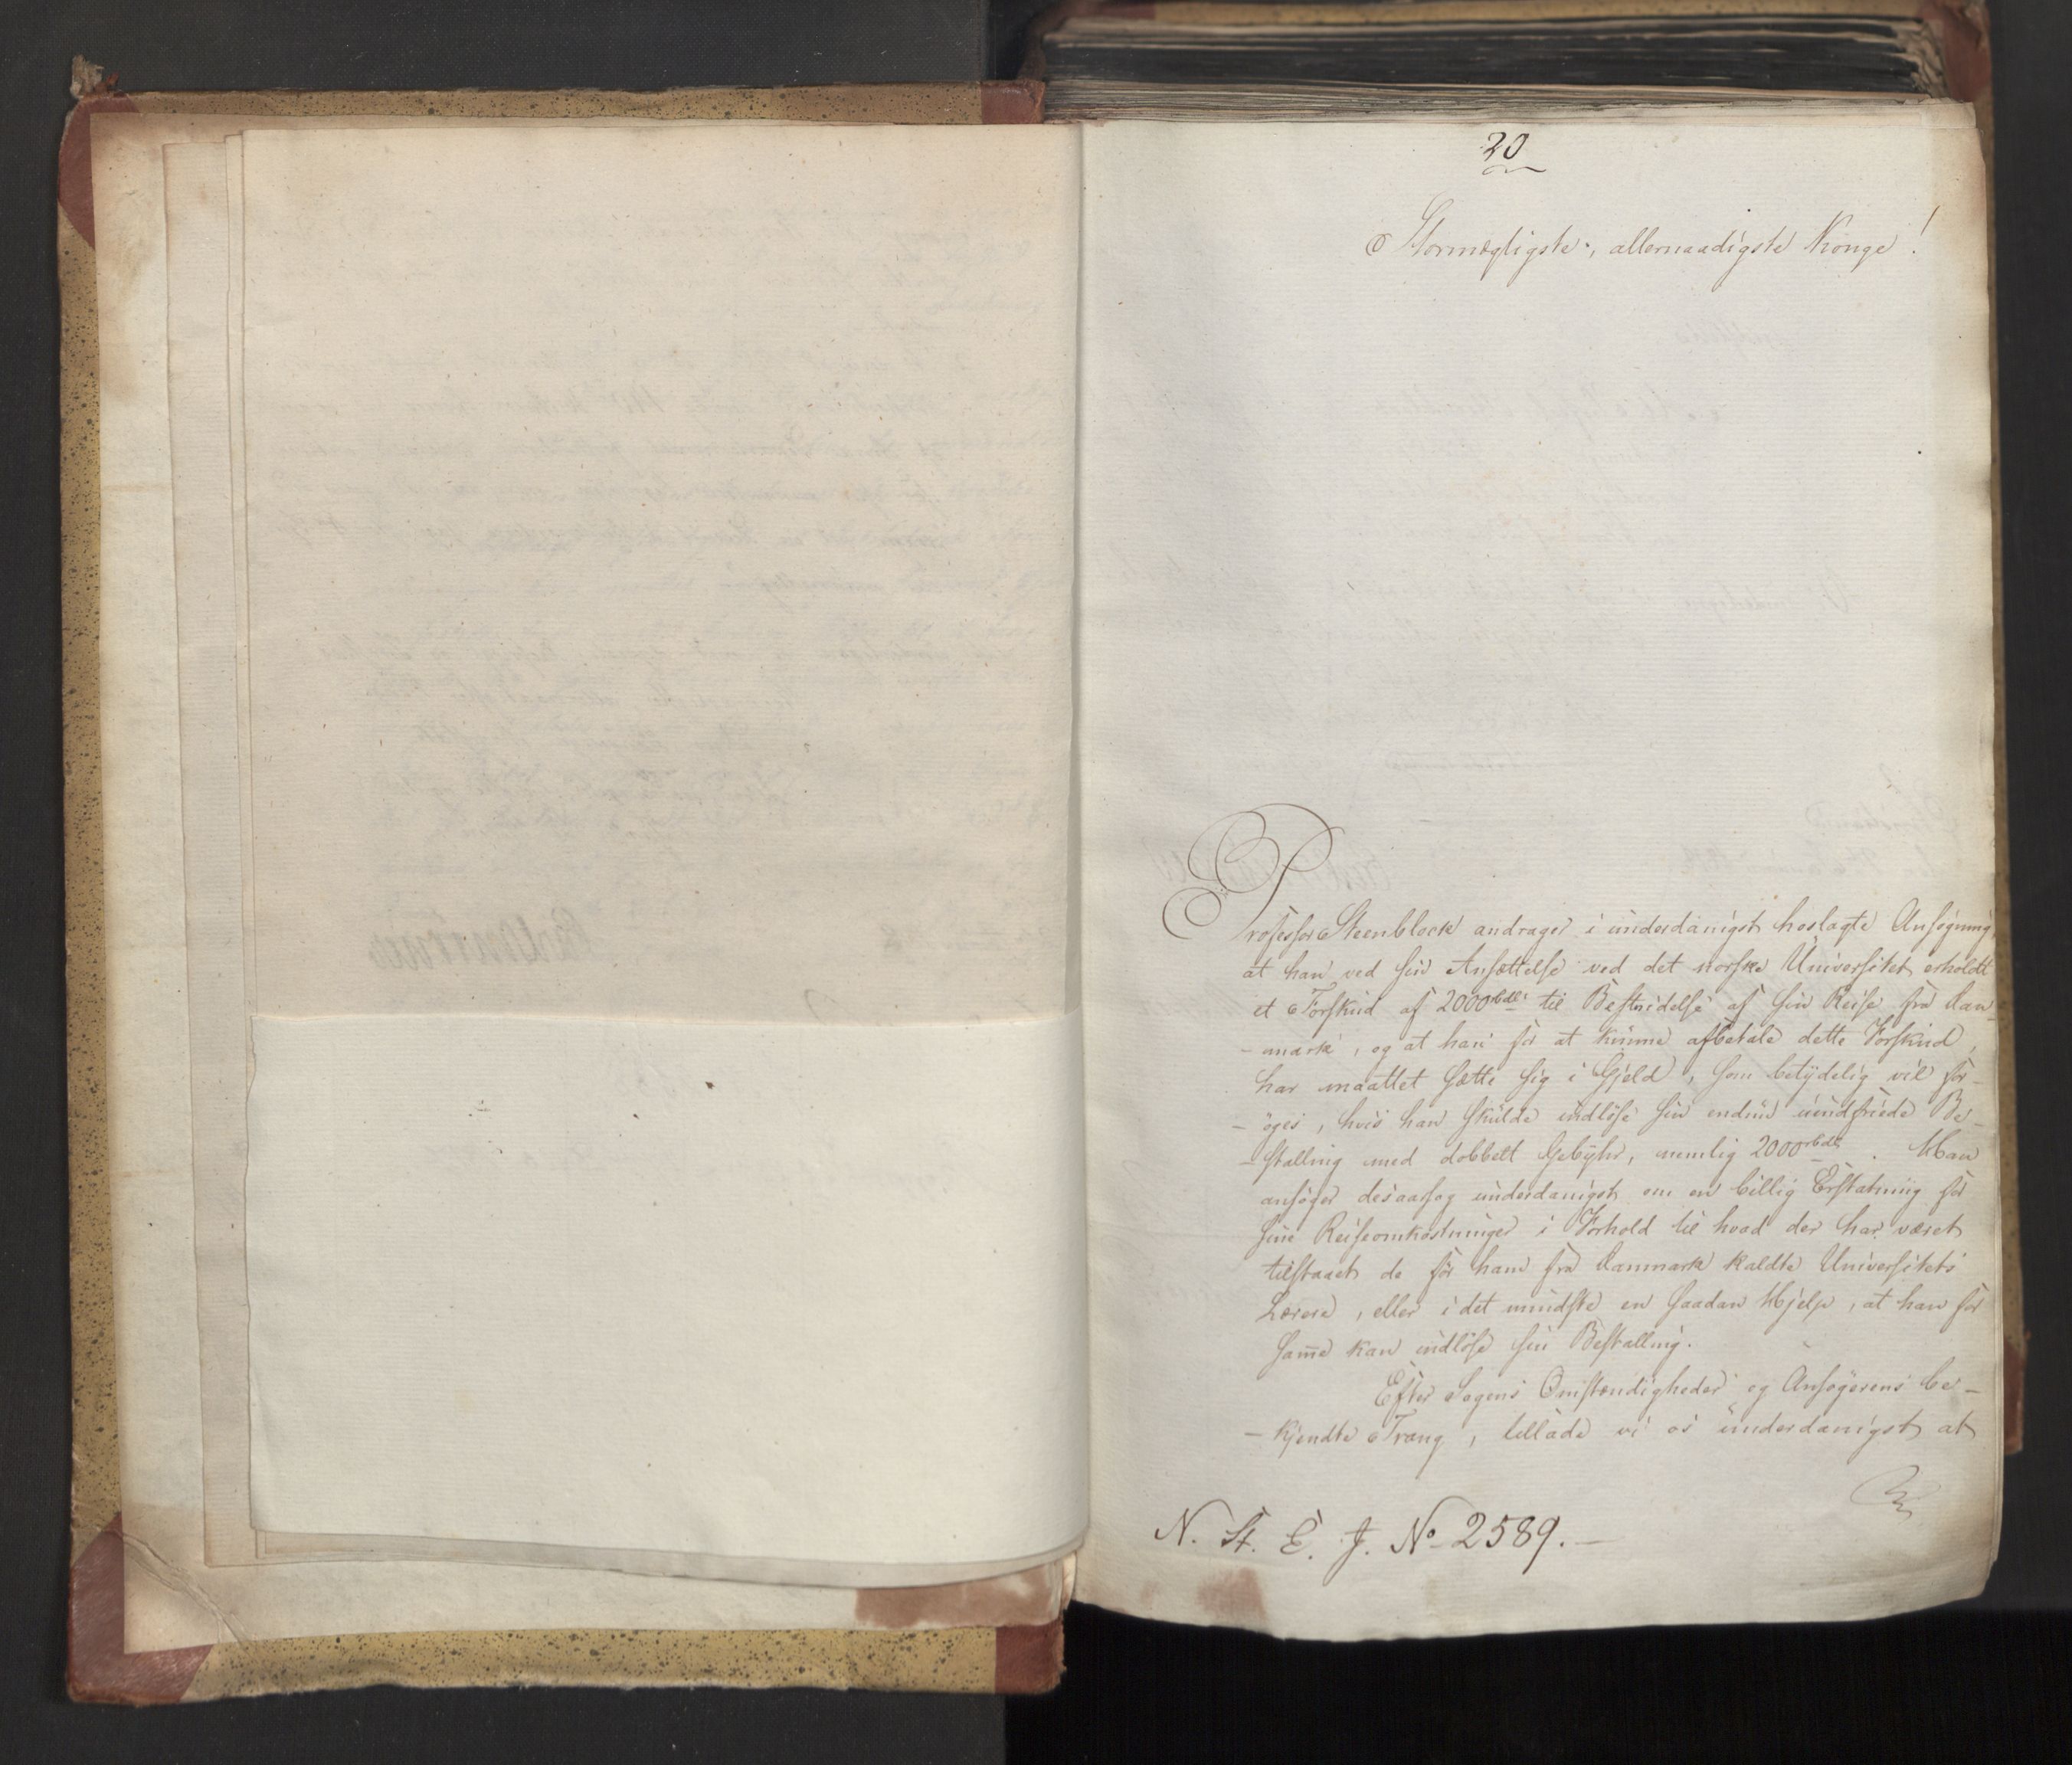 20
Stormægtigste, allernaadigste Konge!
Professor Steenblock andrager i underdanigst hoslagte Ansøgning,
at han ved sin Ansættelse ved det norske Universitet erholdt
et Forskud af 2000 rbdlr til Bestridelse af sin Reise fra Dan-
-mark, og at han for at kunne afbetale dette Forskud,
har maattet sætte sig i Gjeld, som betydelig vil for-
-øges, hvis han skulde indløse sin endnu uindfriede Be-
-stalling med dobbelt Gebyhr, nemlig 2000 rbdlr. Han
ansøger desaarsag underdanigst om en billig Erstatning for
sine Reiseomkostninger i Forhold til hvad der har været
tilstaaet de før ham fra Danmark kaldte Universitets
Lærere, eller i det mindste en saadan Hjelp, at han for
sam̄e kan indløse sin Bestalling.
Efter Sagens Omstændigheder og Ansøgerens be-
-kjendte Trang, tillade vi os underdanigst at
N. St. E. J. No 2589.-